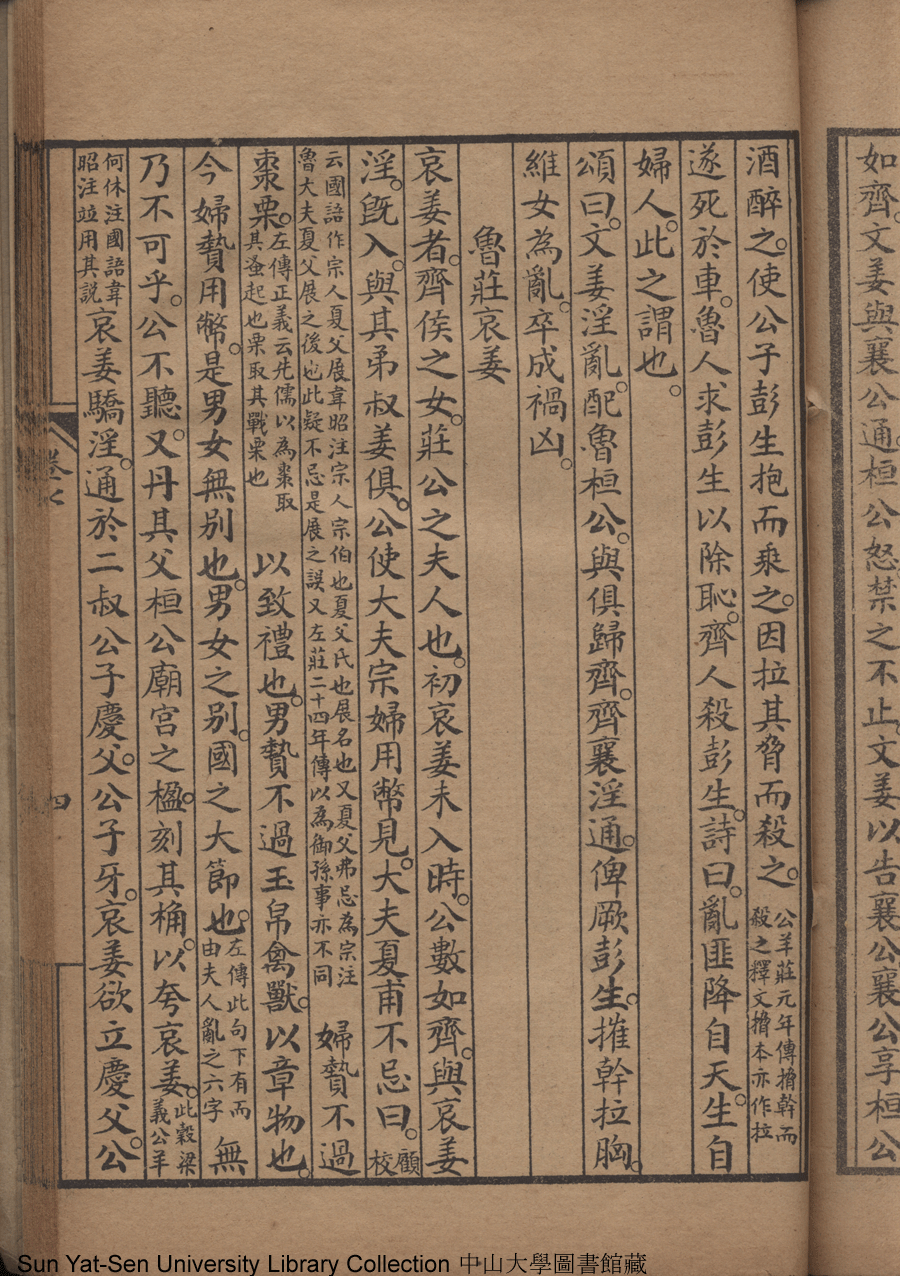 如齊。文姜與襄公通。桓公怒禁之不止。文姜以告襄公。襄公享桓公
酒醉之。使公子彭生抱而乘之。因拉其脅而殺之。公羊莊元年傳搚幹而殺之釋文搚本亦作拉
遂死於車。魯人求彭生以除恥。齊人殺彭生。詩曰。亂匪降自天。生自
婦人。此之謂也。
頌曰。文姜淫亂。配魯桓公。與俱歸齊。齊襄淫通。俾厥彭生。摧幹拉胸。
維女為亂。卒成禍凶。
魯莊哀姜
哀姜者。齊侯之女。莊公之夫人也。初哀姜未入時。公數如齊。與哀姜
淫。旣入。與其弟叔姜俱。公使大夫宗婦用幣見。大夫夏甫不忌曰。顧校
云國語作宗人夏父展韋昭注宗人宗伯也夏父氏也展名也又夏父弗忌為宗注魯大夫夏父展之後也此疑不忌是展之誤又左莊二十四年傳以為御孫事亦不同 婦贄不過
棗栗。左傳正義云先儒以為棗取其蚤起也栗取其戰栗也 以致禮也。男贄不過玉帛禽獸。以章物也。
今婦贄用幣。是男女無別也。男女之別。國之大節也。左傳此句下有而由夫人亂之六字 無
乃不可乎。公不聽。又丹其父桓公廟宮之楹。刻其桷。以夸哀姜。此穀梁義公羊
何休注國語韋昭注竝用其說 哀姜驕淫。通於二叔公子慶父。公子牙。哀姜欲立慶父。公
卷七
四
Sun Yat-Sen University Library Collection 中山大學圖書館藏